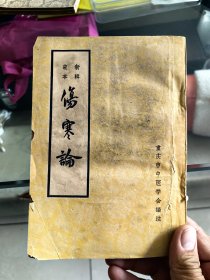 新辑
宋本
傷寒論
重庆市中医学会编注